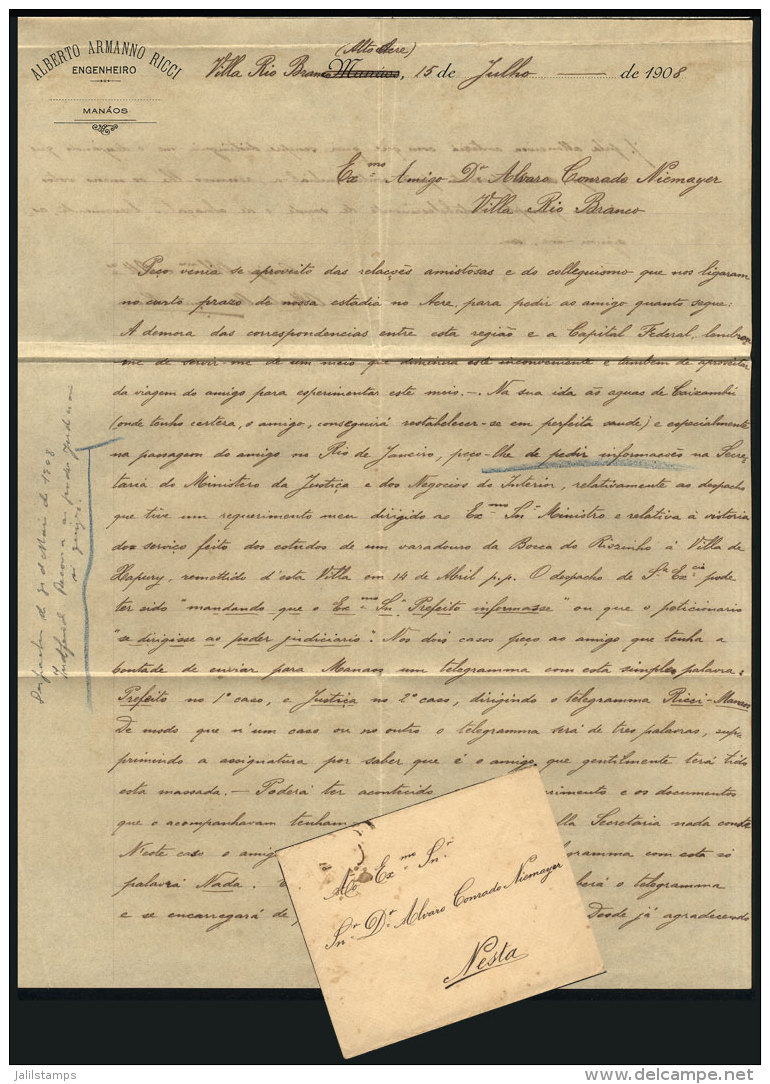 ALBERTO ARMANNO RICCI
ENGENHEIRO
MANÁOS
(Alto Acre)
Villa Rio Branco Manáos, 15 de Julho de 1908
Ex.mo Amigo Dr Alvaro Conrado Niemayer
Villa Rio Branco
Peço venia se aproveito das relações amistosas e do colleguismo que nos ligaram
no curto prazo de nossa estadia no Acre, para pedir ao amigo quanto segue:
A demora das correspondencias entre esta região e a Capital Federal, lembrou-
me de servir-me de um meio que diminera este inconveniente e tambem de aproveitar
da viagem do amigo para esperimentar este meio. — Na sua ida ás aguas de Caixambú
(onde tenho certera, o amigo, conseguirá restabelecer-se em perfeita saude) e especialmente
na passagem do amigo no Rio de Janeiro, peço-lhe de pedir informações na Secre-
taria do Ministero da Justiça e dos Negocios do Interior, relativamente ao despacho
que tive um requerimento meu dirigido ao Ex.mo Snr Ministro e relativa á vistoria
dos serviço feito dos estudos de um varadouro da Bocca do Riozinho á Villa de
Xapury, remettido d'esta Villa em 14 de Abril p.p. O despacho de Sa Excia pode
ter sido "mandando que o Ex.mo Snr Prefeito informasse" ou que o peticionario
"se dirigisse ao poder judiciario". Nos dois casos peço ao amigo que tenha a
bontade de enviar para Manaos um telegramma com esta simples palavra:
Prefeito no 1o caso, e Justiça no 2o caso, dirigindo o telegramma Ricci-Manaos
De modo que n'um caso ou no outro o telegramma será de tres palavras, sup-
primindo a assignatura por saber que é o amigo que gentilmente terá tido
esta massada. — Poderá ter acontecido rimento e os documentos
que o acompanhavam tenham lla Secretaria nada conste
N'este caso o amig legramma com esta só
palavra Nada. berá o telegramma
e se encarregará de Desde já agradecendo
de Maio de 1908
Ao Ex.mo Snr.
Snr Dr Alvaro Conrado Niemayer
Nesta
jalilstamps
delcampe.net